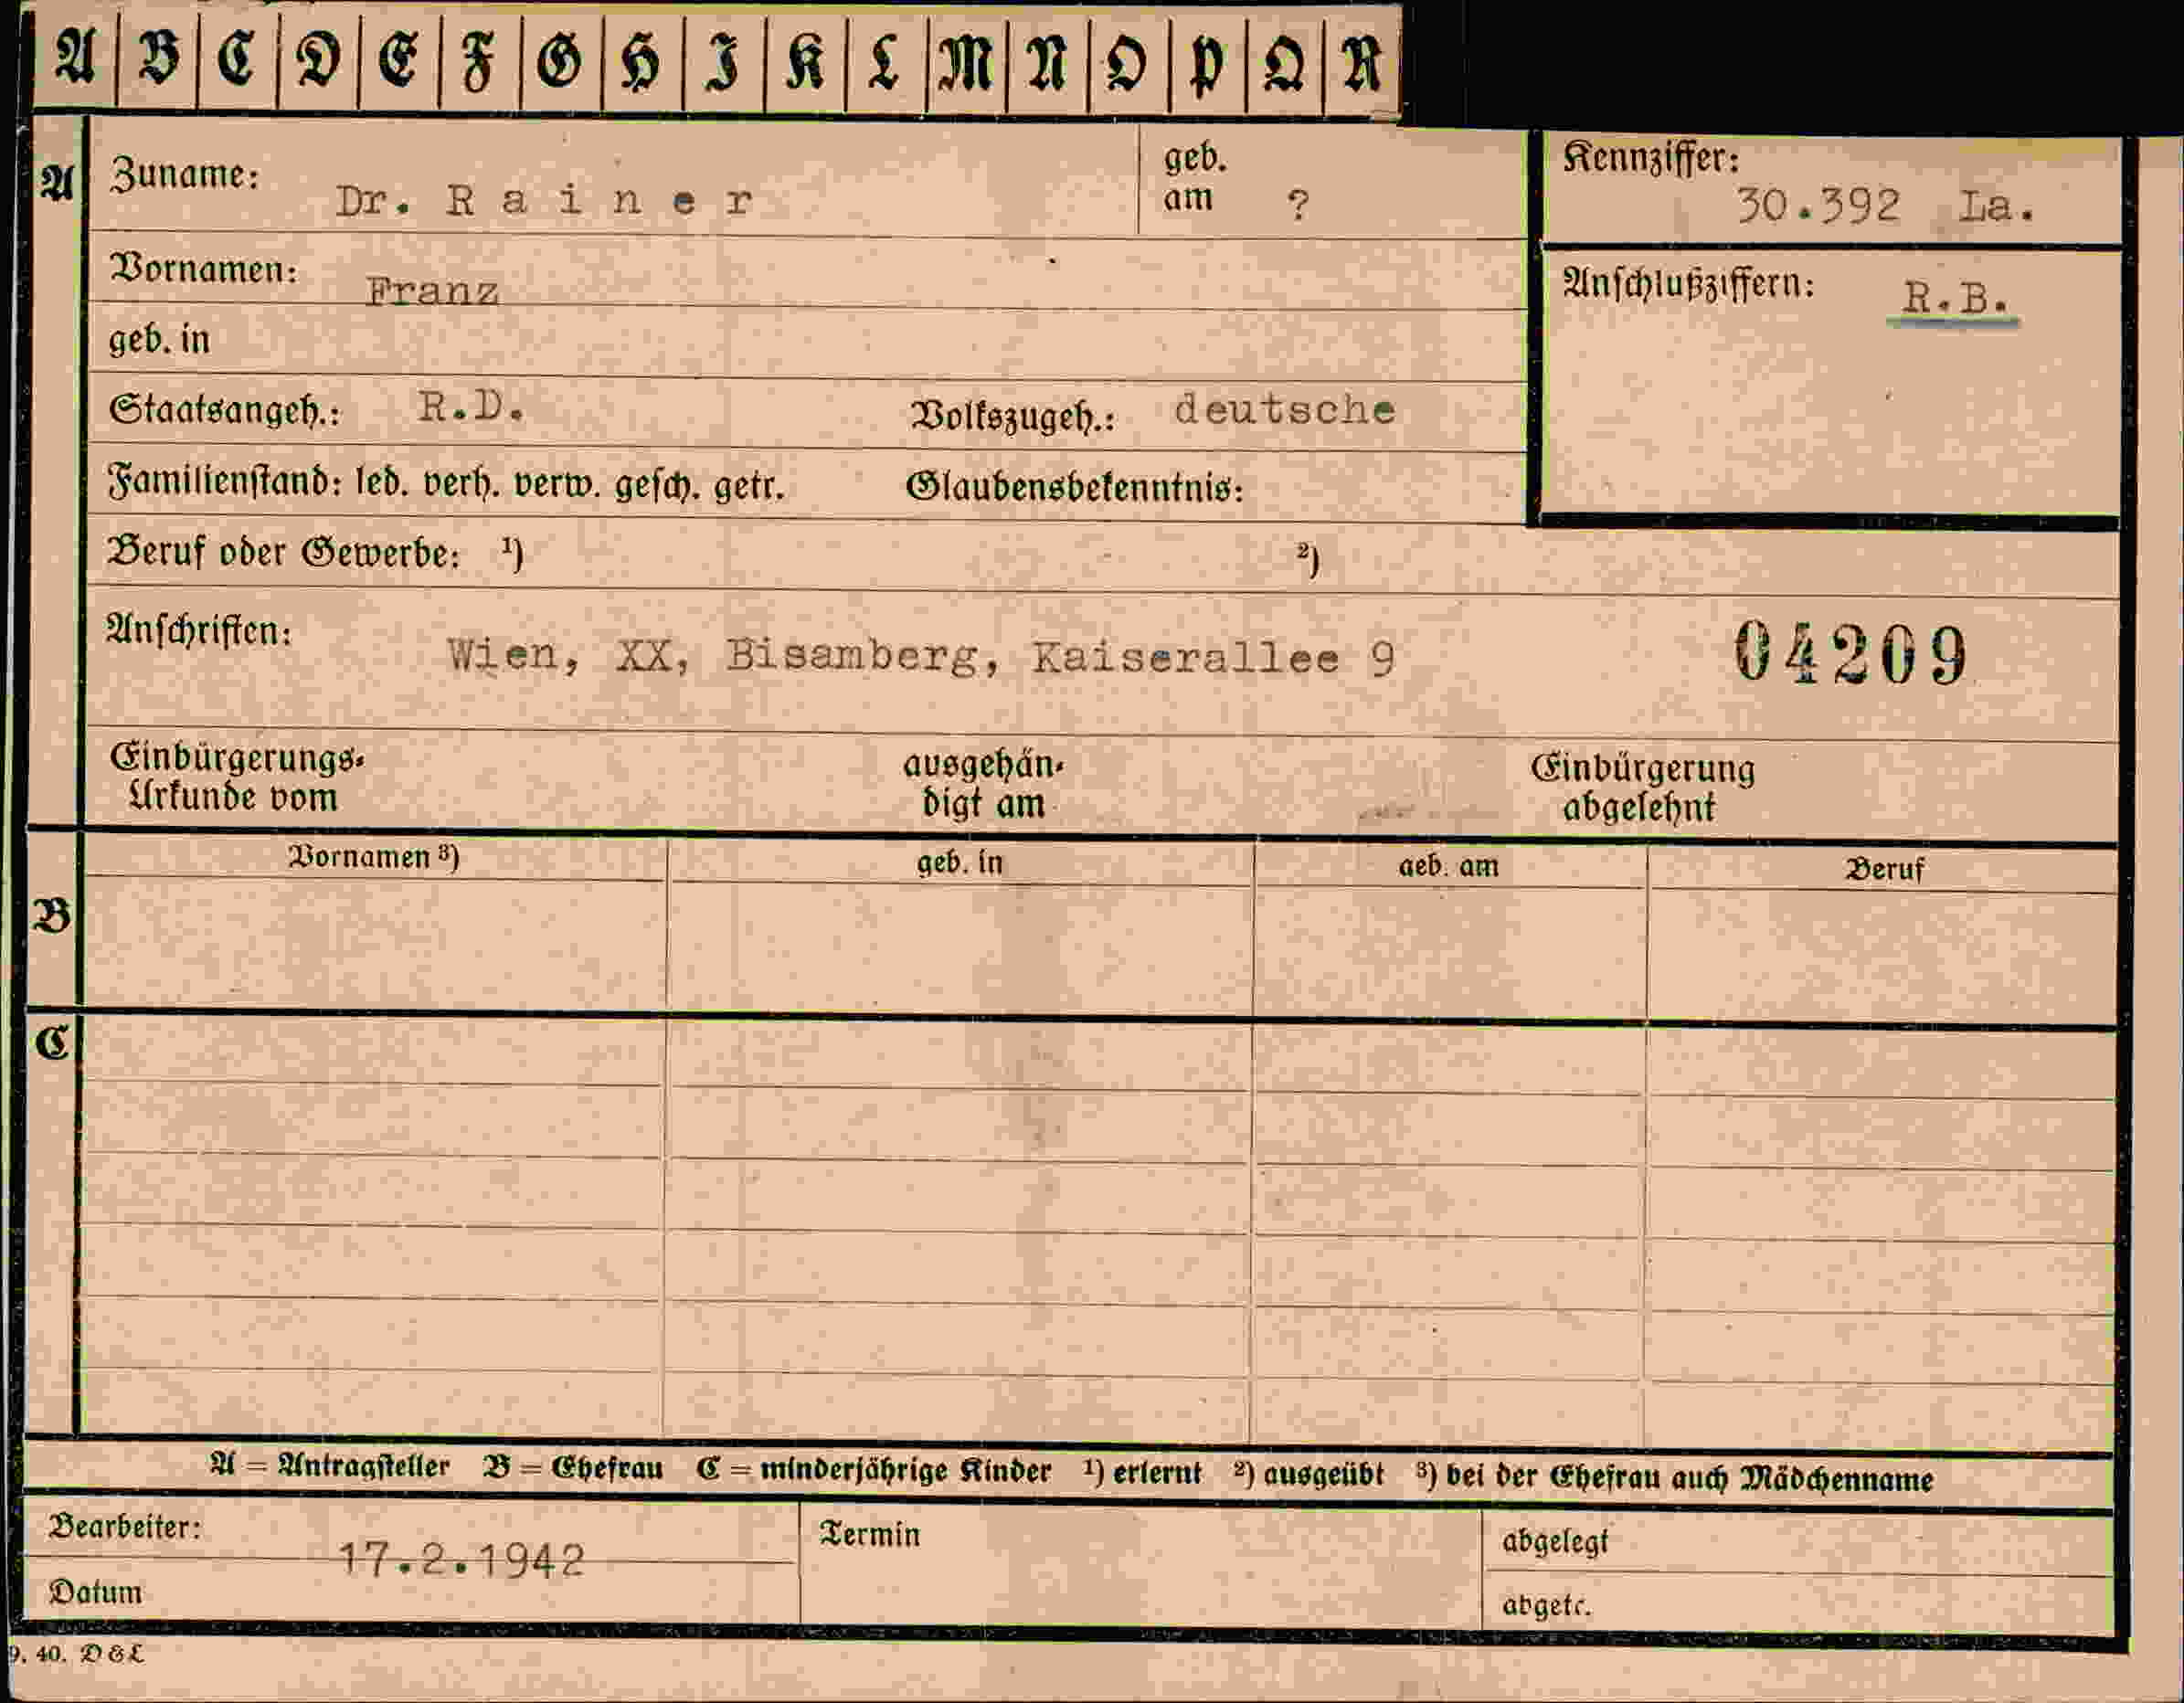 A B C D E F G H I K L M N O P Q R
A
Zuname: Dr. R a i n e r
geb. am ?
Kennziffer: 30.392 La.
Vornamen: Franz
Anschlußziffern: R.B.
geb. in
Staatsangeh.: R.D. Volkszugeh.: deutsche
Familienstand: led. verh. verw. gesch. getr. Glaubensbekenntnis:
Beruf oder Gewerbe: ¹) ²)
Anschriften: Wien, XX, Bisamberg, Kaiserallee 9 04209
Einbürgerungs- ausgehän- Einbürgerung
Urkunde vom digt am abgelehnt
Vornamen ³) geb. in geb. am Beruf
B
C
A = Antragsteller B = Ehefrau C = minderjährige Kinder ¹) erlernt ²) ausgeübt ³) bei der Ehefrau auch Mädchenname
Bearbeiter: Termin abgelegt
17.2.1942
Datum abgetr.
9. 40. D & L